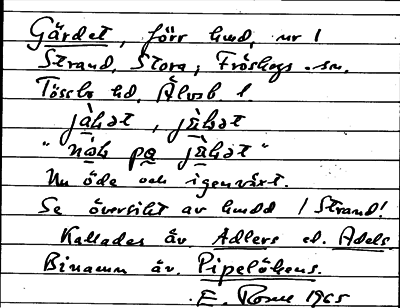 Gärdet, förr hmd, nr 1
Strand, Stora, Fröskogs sn.
Tössbo hd, Älvsb l.
" på
Nu öde och igenväxt.
Se översikt av hmdd / Strand!
Kallades äv. Adlers el. Adels
Binamn äv. Pipelökens.
E. Rome 1965